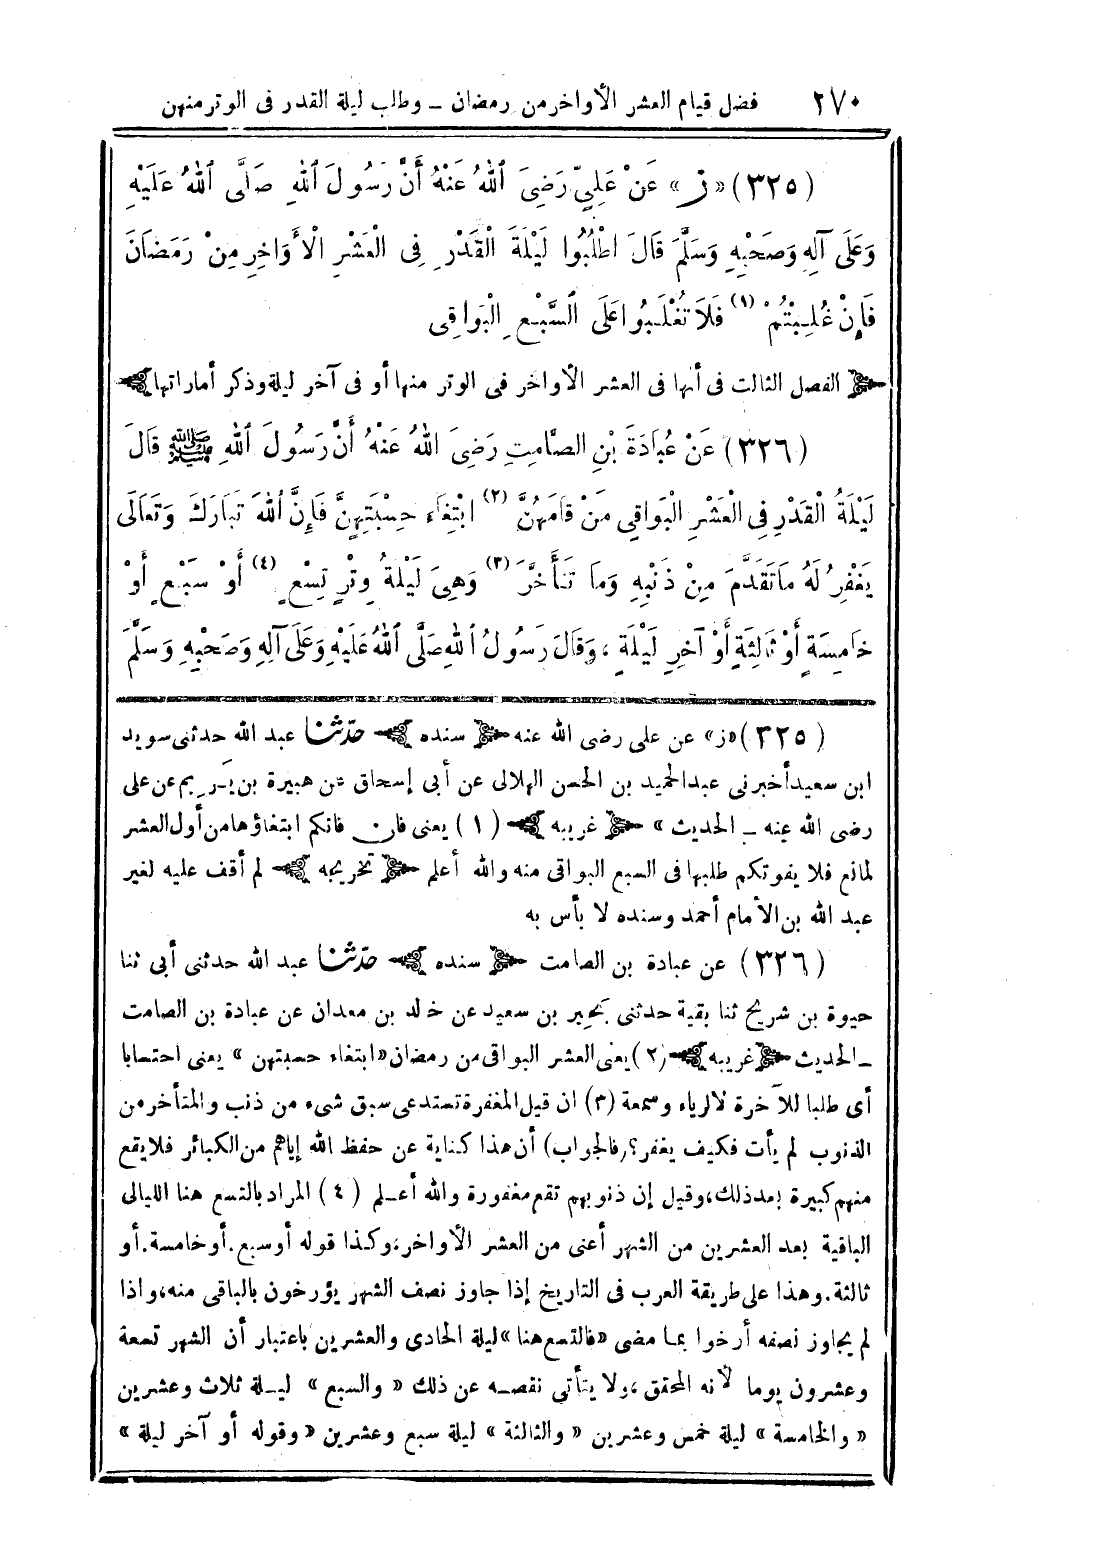 ٢٧٠ فضل قيام العشر الأواخر من رمضان ـ وطلب ليلة القدر فى الوتر منهن
(٣٢٥) «ز» عَنْ عَلِيٍّ رَضِىَ اللهُ عَنْهُ أَنَّ رَسُولَ اللهِ صَلَّى اللهُ عَلَيْهِ
وَعَلَى آلِهِ وَصَحْبِهِ وَسَلَّمَ قَالَ اطْلُبُوا لَيْلَةَ الْقَدْرِ فِى الْعَشْرِ الْأَوَاخِرِ مِنْ رَمَضَانَ
فَإِنْ غُلِبْتُمْ (١) فَلَا تُغْلَبُوا عَلَى السَّبْعِ الْبَوَاقِى
﴿ الفصل الثالث فى أنها فى العشر الأواخر فى الوتر منها أو فى آخر ليلة وذكر أماراتها ﴾
(٣٢٦) عَنْ عُبَادَةَ بْنِ الصَّامِتِ رَضِىَ اللهُ عَنْهُ أَنَّ رَسُولَ اللهِ ﷺ قَالَ
لَيْلَةُ الْقَدْرِ فِى الْعَشْرِ الْبَوَاقِى مَنْ قَامَهُنَّ (٢) ابْتِغَاءَ حِسْبَتِهِنَّ فَإِنَّ اللهَ تَبَارَكَ وَتَعَالَى
يَغْفِرُ لَهُ مَا تَقَدَّمَ مِنْ ذَنْبِهِ وَمَا تَأَخَّرَ (٣) وَهِىَ لَيْلَةُ وِتْرٍ تِسْعٍ (٤) أَوْ سَبْعٍ أَوْ
خَامِسَةٍ أَوْ ثَالِثَةٍ أَوْ آخِرِ لَيْلَةٍ ، وَقَالَ رَسُولُ اللهِ صَلَّى اللهُ عَلَيْهِ وَعَلَى آلِهِ وَصَحْبِهِ وَسَلَّمَ
(٣٢٥) «ز» عن على رضى الله عنه ﴿ سنده ﴾ حدّثنا عبد الله حدثنى سويد
ابن سعيد أخبرنى عبد الحميد بن الحسن الهلالى عن أبى إسحاق عن هبيرة بن يريم عن على
رضى الله عنه ـ الحديث » ﴿ غريبه ﴾ (١) يعنى فان فاتكم ابتغاؤها من أول العشر
لمانع فلا يفوتكم طلبها فى السبع البواقى منه والله أعلم ﴿ تخريجه ﴾ لم أقف عليه لغير
عبد الله بن الأمام أحمد وسنده لا بأس به
(٣٢٦) عن عبادة بن الصامت ﴿ سنده ﴾ حدّثنا عبد الله حدثنى أبى ثنا
حيوة بن شريح ثنا بقية حدثنى بحير بن سعيد عن خالد بن معدان عن عبادة بن الصامت
ـ الحديث ﴿ غريبه ﴾ (٢) يعنى العشر البواقى من رمضان «ابتغاء حسبتهن » يعنى احتسابا
أى طلبا للآخرة لا لرياء وسمعة (٣) ان قيل المغفرة تستدعى سبق شىء من ذنب والمتأخر من
الذنوب لم يأت فكيف يغفر؟ (فالجواب) أن هذا كناية عن حفظ الله إياهم من الكبائر فلا يقع
منهم كبيرة بعد ذلك، وقيل إن ذنوبهم تقع مغفورة والله أعلم (٤) المراد بالتسع هنا الليالى
الباقية بعد العشرين من الشهر أعنى من العشر الأواخر، وكذا قوله أو سبع. أو خامسة. أو
ثالثة. وهذا على طريقة العرب فى التاريخ إذا جاوز نصف الشهر يؤرخون بالباقى منه، واذا
لم يجاوز نصفه أرخوا بما مضى «فالتسع هنا» ليلة الحادى والعشرين باعتبار أن الشهر تسعة
وعشرون يوما لأنه المحقق، ولا يتأتى نقصه عن ذلك « والسبع » ليلة ثلاث وعشرين
« والخامسة » ليلة خمس وعشرين « والثالثة » ليلة سبع وعشرين « وقوله أو آخر ليلة »